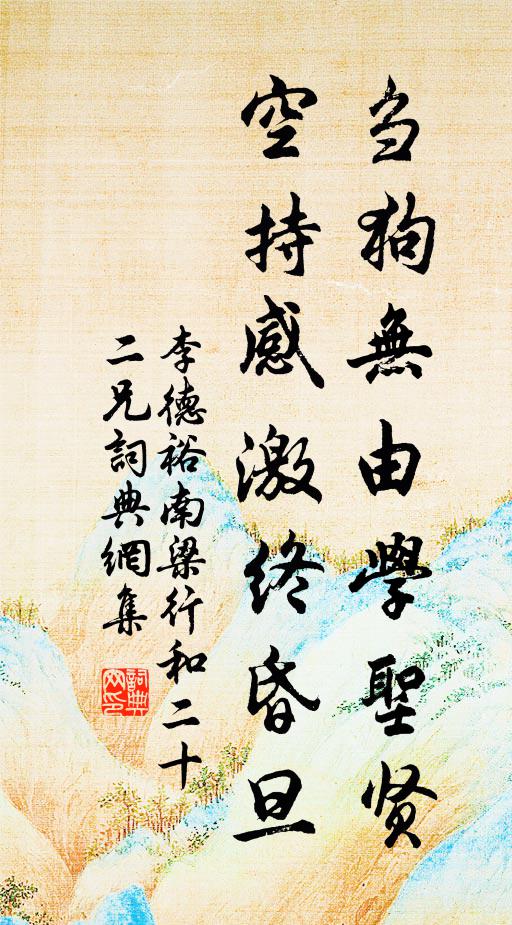 刍狗無由學聖贤
空持感激終昏旦
李德裕南梁行和二十
二兄詞典網集
詞典
网印